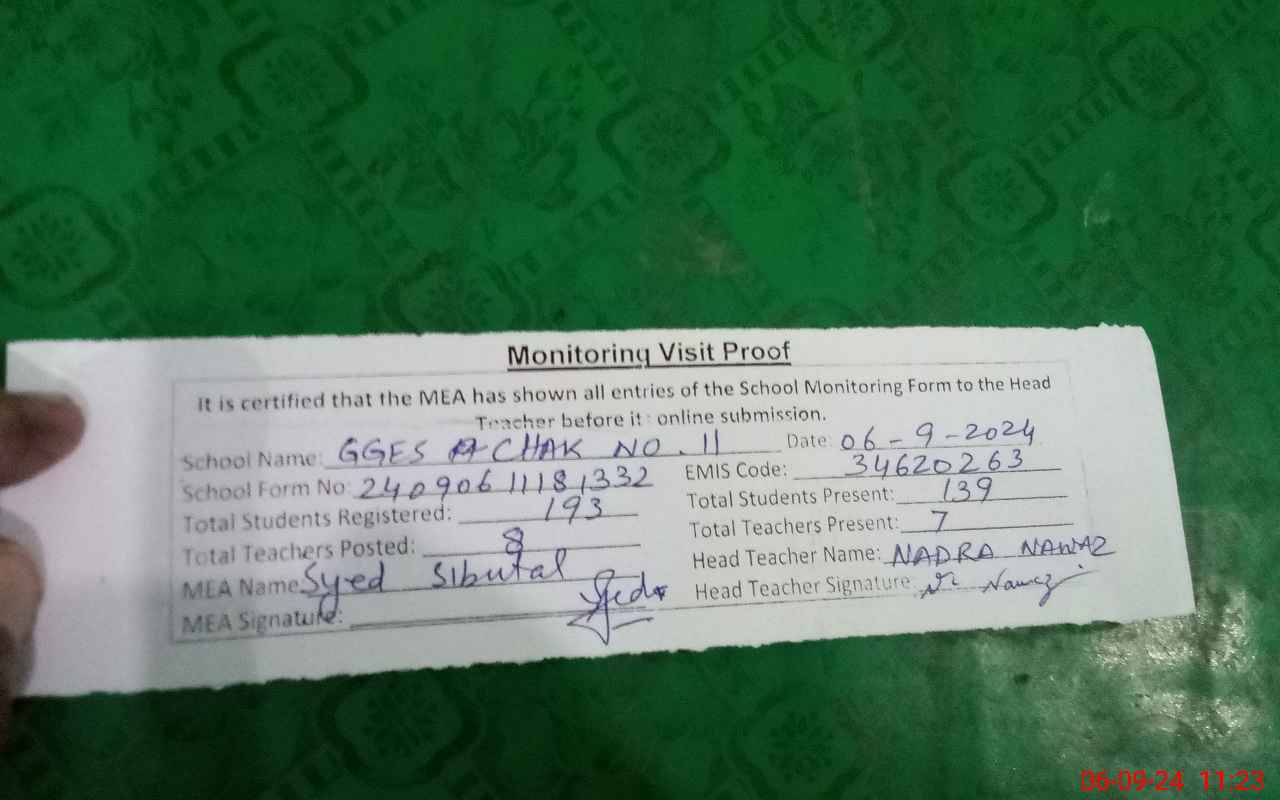 Monitoring Visit Proof
It is certified that the MEA has shown all entries of the School Monitoring Form to the Head
Teacher before it: online submission.
School Name: GGES CHAK NO. 11 Date: 06-9-2024
School Form No: 24090611181332 EMIS Code: 34620263
Total Students Registered: 193 Total Students Present: 139
Total Teachers Posted: 8 Total Teachers Present: 7
MEA Name: Syed Sibutal Head Teacher Name: NADRA NAWAZ
MEA Signature: Syed Head Teacher Signature: Nawaz
06-09-24 11:23